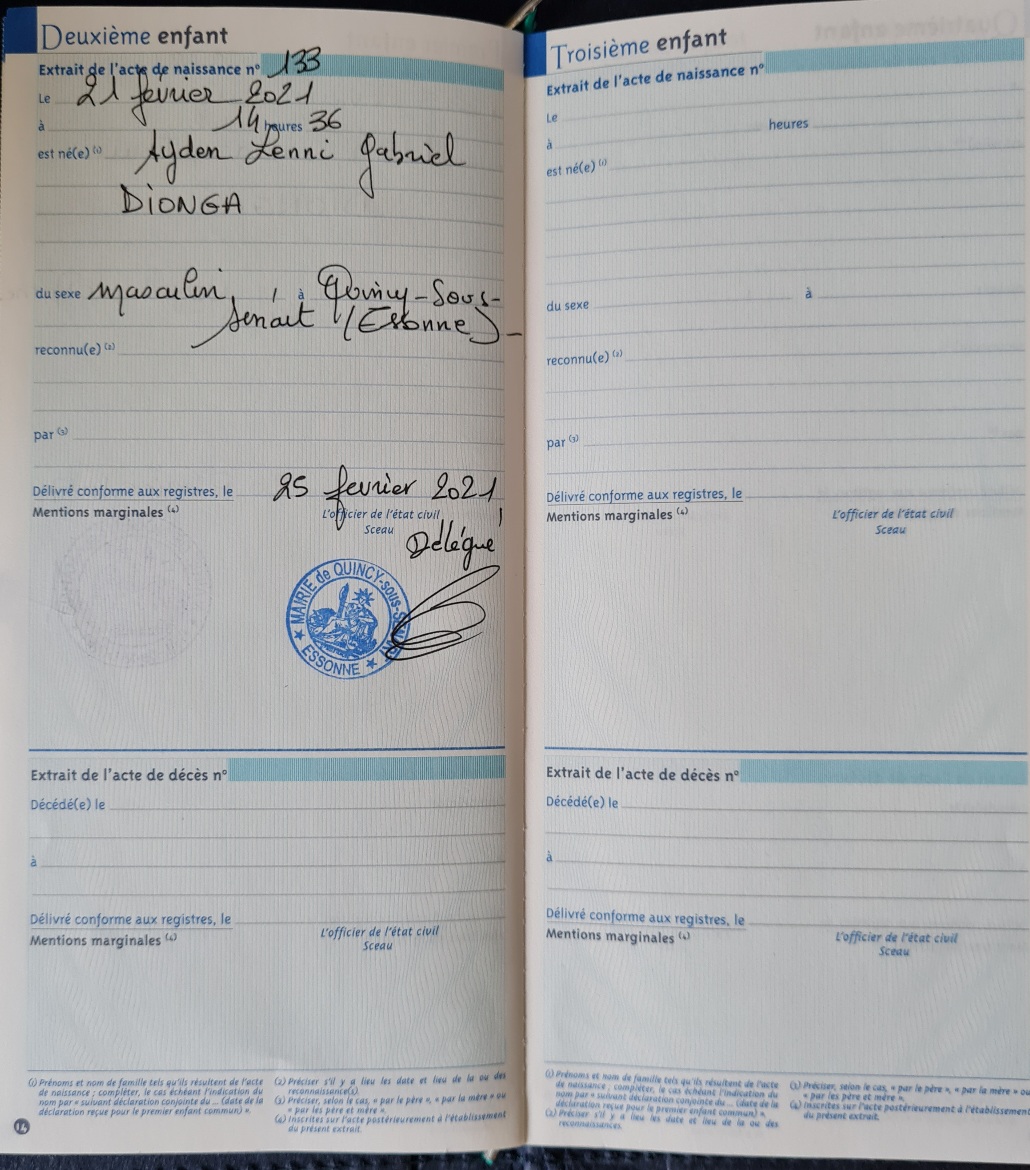 Deuxième enfant
Extrait de l'acte de naissance n° 133
Le 21 février 2021
à 14 heures 36
est né(e) (1) Ayden Lenni Gabriel
DIONGA
du sexe masculin, à Quincy-Sous-
Senart (Essonne)
reconnu(e) (2)
par (3)
Délivré conforme aux registres, le 25 fevrier 2021
Mentions marginales (4)
L'officier de l'état civil
Sceau
Délégué
MAIRIE de QUINCY-sous-SÉNART
ESSONNE
Extrait de l'acte de décès n°
Décédé(e) le
à
Délivré conforme aux registres, le
Mentions marginales (4)
L'officier de l'état civil
Sceau
(1) Prénoms et nom de famille tels qu'ils résultent de l'acte
de naissance ; compléter, le cas échéant l'indication du
nom par « suivant déclaration conjointe du ... (date de la
déclaration reçue pour le premier enfant commun) ».
(2) Préciser s'il y a lieu les date et lieu de la ou des
reconnaissance(s).
(3) Préciser, selon le cas, « par le père », « par la mère » ou
« par les père et mère ».
(4) Inscrites sur l'acte postérieurement à l'établissement
du présent extrait.
14
Troisième enfant
Extrait de l'acte de naissance n°
Le
à heures
est né(e) (1)
du sexe à
reconnu(e) (2)
par (3)
Délivré conforme aux registres, le
Mentions marginales (4)
L'officier de l'état civil
Sceau
Extrait de l'acte de décès n°
Décédé(e) le
à
Délivré conforme aux registres, le
Mentions marginales (4)
L'officier de l'état civil
Sceau
(1) Prénoms et nom de famille tels qu'ils résultent de l'acte
de naissance ; compléter, le cas échéant l'indication du
nom par « suivant déclaration conjointe du ... (date de la
déclaration reçue pour le premier enfant commun) ».
(2) Préciser s'il y a lieu les date et lieu de la ou des
reconnaissances.
(3) Préciser, selon le cas, « par le père », « par la mère » ou
« par les père et mère ».
(4) Inscrites sur l'acte postérieurement à l'établissement
du présent extrait.